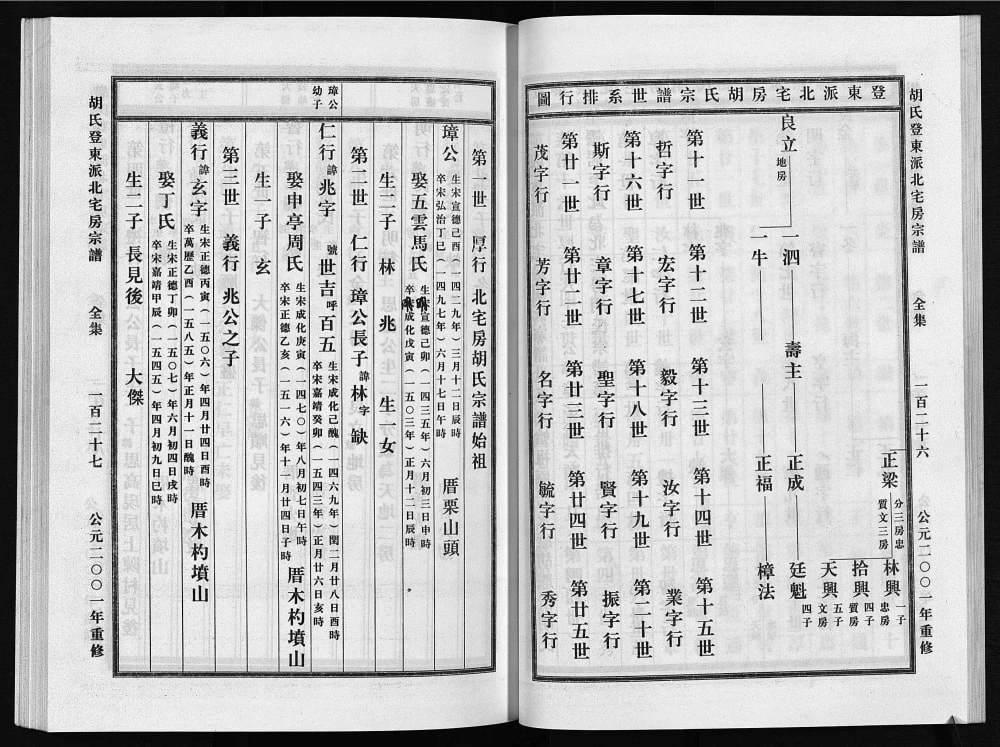 胡氏登東派北宅房宗譜 全集 一百二十六 公元二〇〇一年重修
登東派北宅房胡氏宗譜世系排行圖
正梁 分三房忠質文三房
林興 一子忠房
拾興 四子質房
天興 五子文房
良立 地房
一泗 壽主 正成 廷魁 四子
一牛 正福 樟法
第十一世 第十二世 第十三世 第十四世 第十五世
哲字行 宏字行 毅字行 汝字行 業字行
第十六世 第十七世 第十八世 第十九世 第二十世
斯字行 章字行 聖字行 賢字行 振字行
第廿一世 第廿二世 第廿三世 第廿四世 第廿五世
茂字行 芳字行 名字行 毓字行 秀字行
第一世 厚行 北宅房胡氏宗譜始祖
璋公 生宋宣德己酉(一四二九年)三月十二日辰時 卒宋弘治丁巳(一四九七年)六月十七日午時 厝栗山頭
娶五雲馬氏 生宣德己卯(一四三五年)六月初三日申時 卒成化戊寅(一五〇三年)正月十二日辰時
生二子 林 兆 生一女
第二世 仁行 璋公長子 諱林字 缺
璋公幼子
仁行 諱兆字 號世吉 呼百五 生宋成化己醜(一四六九年)閏二月廿八日酉時 卒宋嘉靖癸卯(一五四三年)正月廿六日亥時
娶申亭周氏 生宋成化庚寅(一四七〇年)八月初七日午時 卒宋正德乙亥(一五一六)年十一月廿四日子時 厝木杓墳山
生一子 玄
第三世 義行 兆公之子
義行 諱玄字 生宋正德丙寅(一五〇六)年四月廿四日酉時 卒萬歷乙酉(一五八五)年正月十一日醜時 厝木杓墳山
娶丁氏 生宋正德丁卯(一五〇七)年六月初四日戌時 卒宋嘉靖甲辰(一五四五)年四月初九日巳時
生二子 長見後 大傑
胡氏登東派北宅房宗譜 全集 一百二十七 公元二〇〇一年重修